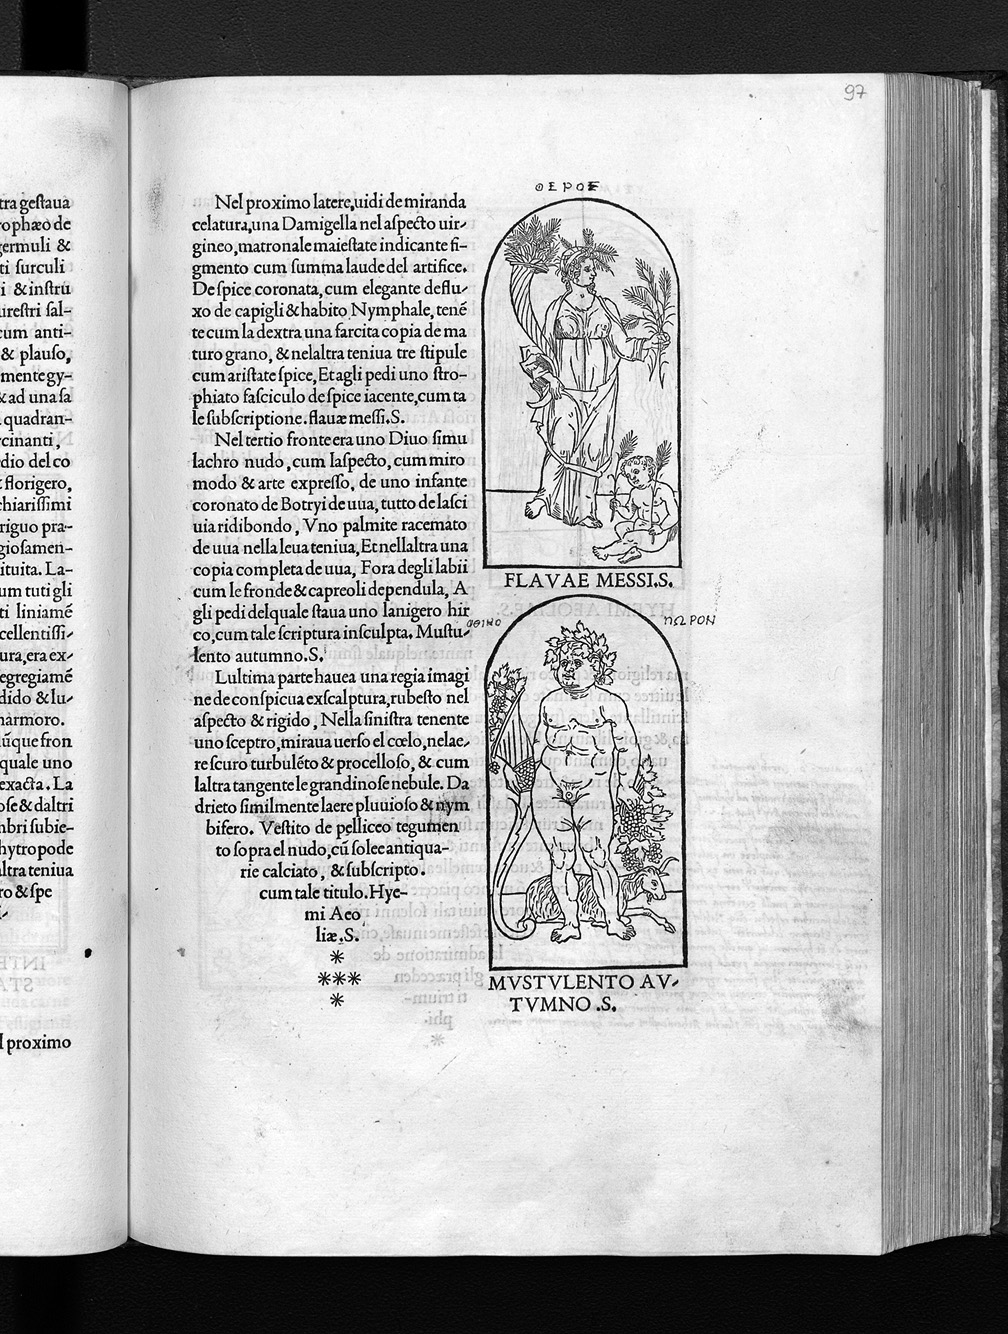 97
tra geſtaua
rophæo de
germuli &
ti ſurculi
i & inſtru
ureſtri ſal-
cum anti-
& plauſo,
mente gy-
& ad una ſa
quadran-
rcinanti,
dio del co
florigero,
chiariſſimi
riguo pra-
gioſamen-
ituita. La-
um tuti gli
ti liniamē
cellentiſſi-
ura, era ex-
egregiamē
dido & lu-
marmoro.
ūque fron
quale uno
exacta. La
oſe & daltri
mbri ſubie-
hytropode
altra teniua
ro & ſpe
l proximo
Nel proximo latere, uidi de miranda
celatura, una Damigella nel aſpecto uir-
gineo, matronale maieſtate indicante fi-
gmento cum ſumma laude del artifice.
De ſpice coronata, cum elegante deflu-
xo de capigli & habito Nymphale, tenē
te cum la dextra una farcita copia de ma
turo grano, & nelaltra teniua tre ſtipule
cum ariſtate ſpice, Et agli pedi uno ſtro-
phiato faſciculo de ſpice iacente, cum ta
le ſubſcriptione. flauæ meſſi. S.
Nel tertio fronte era uno Diuo ſimu
lachro nudo, cum laſpecto, cum miro
modo & arte expreſſo, de uno infante
coronato de Botryi de uua, tutto de laſci
uia ridibondo, Vno palmite racemato
de uua nella leua teniua, Et nellaltra una
copia completa de uua, Fora degli labii
cum le fronde & capreoli dependula, A
gli pedi delquale ſtaua uno lanigero hir
co, cum tale ſcriptura inſculpta. Muſtu-
lento autumno. S.
Lultima parte hauea una regia imagi
ne de conſpicua exſcalptura, rubeſto nel
aſpecto & rigido, Nella ſiniſtra tenente
uno ſceptro, miraua uerſo el cœlo, nelae-
re ſcuro turbulēto & procelloſo, & cum
laltra tangente le grandinoſe nebule. Da
drieto ſimilmente laere pluuioſo & nym
bifero. Veſtito de pelliceo tegumen
to ſopra el nudo, cū ſolee antiqua-
rie calciato, & ſubſcripto.
cum tale titulo. Hye-
mi Aeo
liæ. S.
*
***
*
ΘΕΡΟΣ
FLAVAE MESSI. S.
ΟΘΙΝΟ
ΠΩΡΟΝ
MVSTVLENTO AV-
TVMNO .S.